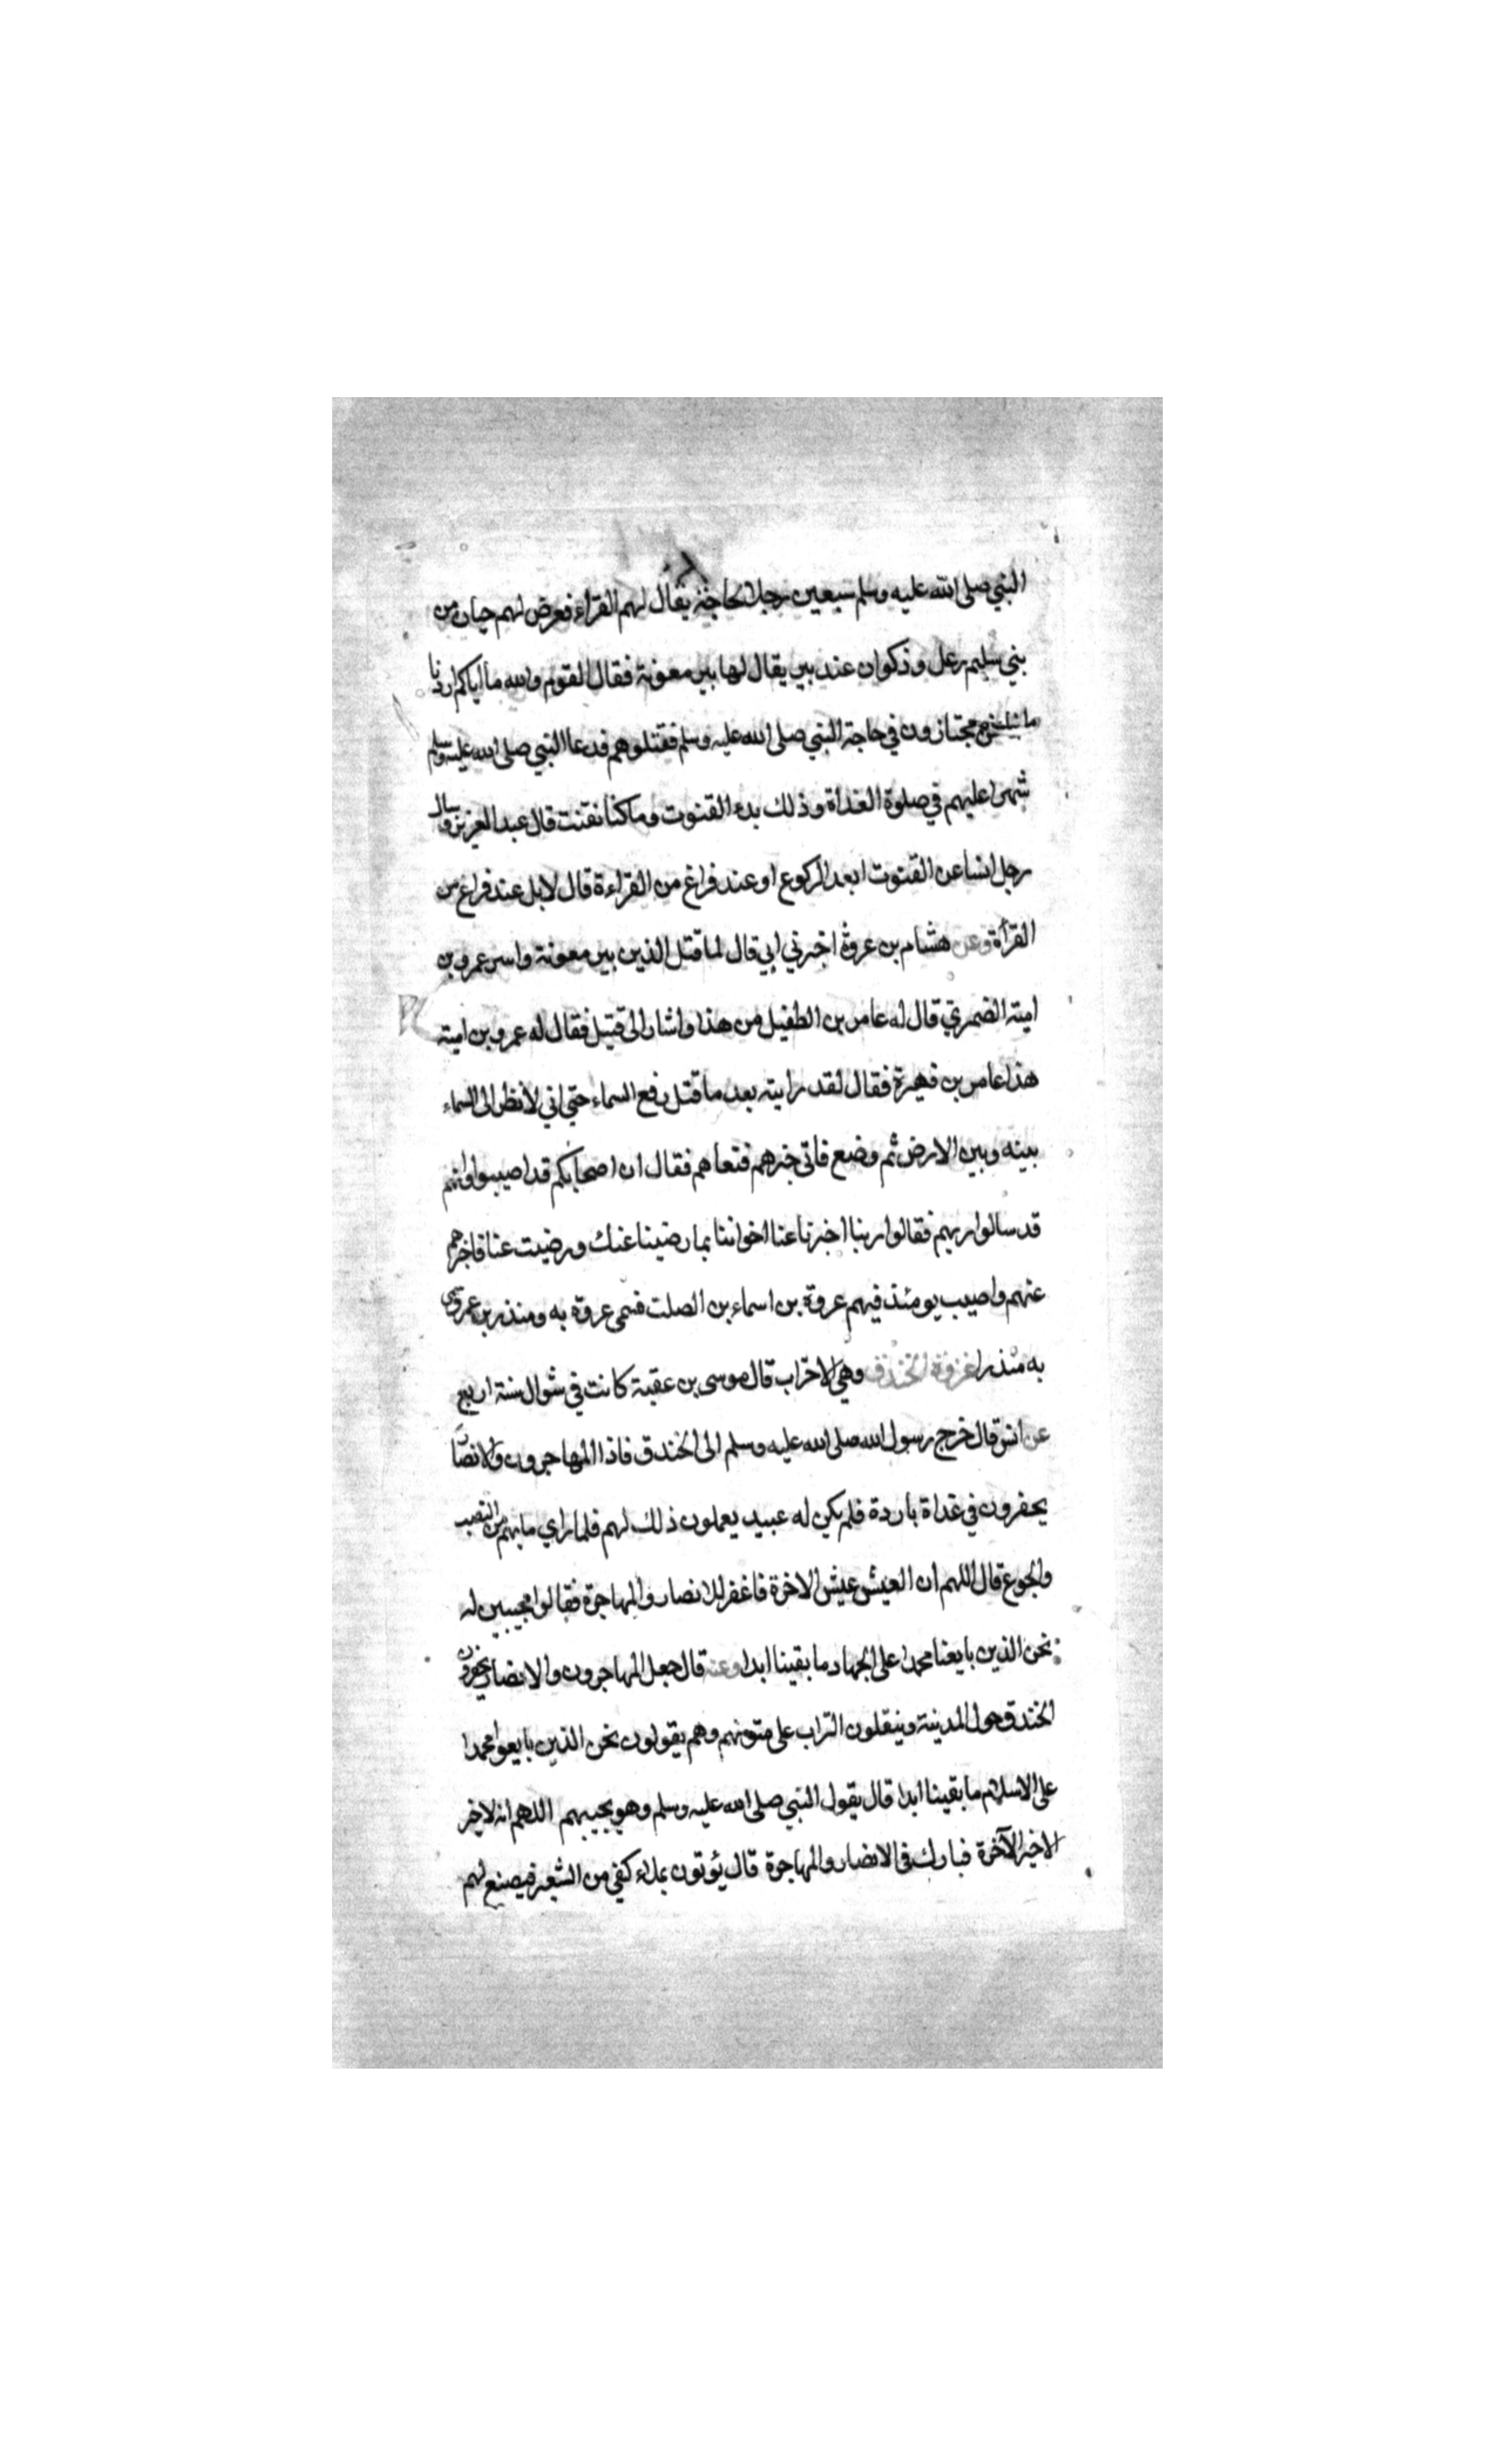 النبي صلى الله عليه وسلم سبعين رجلا لحاجة يقال لهم القراء فعرض لهم حيان من
بني سليم رعل وذكوان عند بير يقال لها بير معونة فقال القوم والله ما اياكم اردنا
انما نحن مجتازون في حاجة النبي صلى الله عليه وسلم فقتلوهم فدعا النبي صلى الله عليه وسلم
شهرا عليهم في صلوة الغداة وذلك بدء القنوت وما كنا نقنت قال عبد العزيز وسال
رجل انسا عن القنوت ابعد الركوع او عند فراغ من القراءة قال لا بل عند فراغ من
القراة وعن هشام بن عروة اخبرني ابي قال لما قتل الذين ببير معونة واسر عمرو بن
امية الضمري قال له عامر بن الطفيل من هذا واشار الى قتيل فقال له عمرو بن امية
هذا عامر بن فهيرة فقال لقد رايته بعد ما قتل رفع السماء حتي اني لانظر الى السماء
بينه وبين الارض ثم وضع فاتى خبرهم فنعاهم فقال ان اصحابكم قد اصيبوا وانهم
قد سالوا ربهم فقالوا ربنا اخبرنا عنا اخواننا بما رضينا عنك ورضيت عنا فاخبرهم
عنهم واصيب يومئذ فيهم عروة بن اسماء بن الصلت فسمى عروة به ومنذر بن عمرو سمى
به منذرا غزوة الخندق وهي الاحزاب قال موسى بن عقبة كانت في شوال سنة اربع
عن انس قال خرج رسول الله صلى الله عليه وسلم الى الخندق فاذا المهاجرون والانصار
يحفرون في غداة باردة فلم يكن له عبيد يعملون ذلك لهم فلما راي ما بهم من النصب
والجوع قال اللهم ان العيش عيش الاخرة فاغفر للانصار والمهاجرة فقالوا مجيبين له
نحن الذين بايعنا محمدا على الجهاد ما بقينا ابدا وعنه قال جعل المهاجرون والانصار يحفرون
الخندق حول المدينة وينقلون التراب على متونهم وهم يقولون نحن الذين بايعوا محمدا
على الاسلام ما بقينا ابدا قال يقول النبي صلى الله عليه وسلم وهو يجيبهم اللهم انه لا خير
الا خير الآخرة فبارك في الانصار والمهاجرة قال يؤتون بملء كفي من الشعير فيصنع لهم